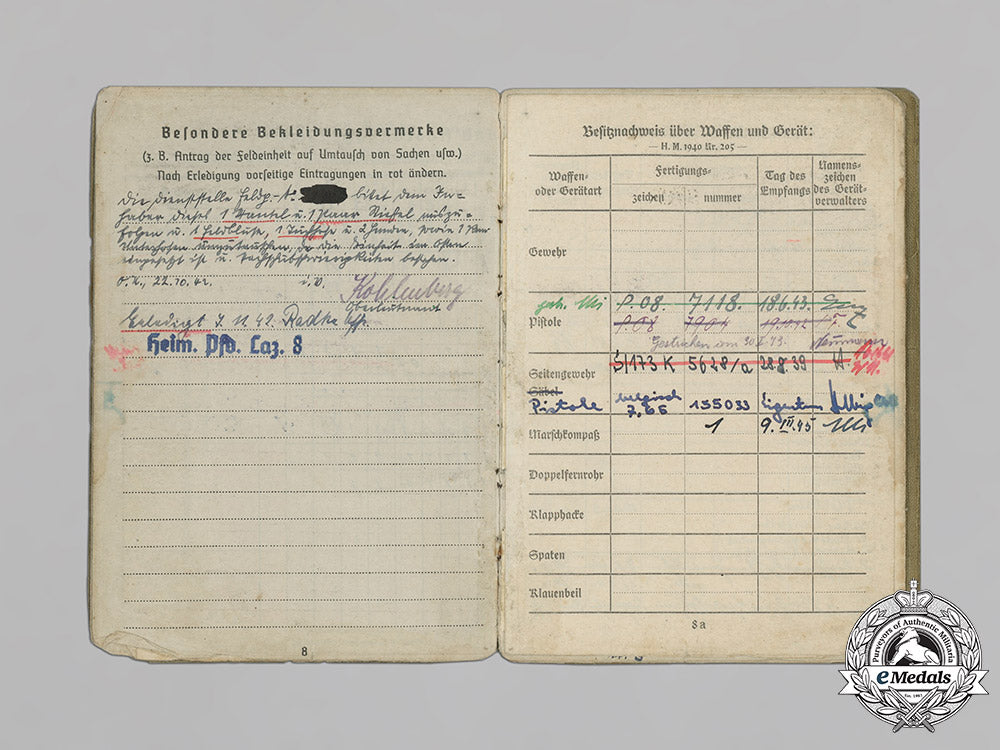 Besondere Bekleidungsvermerke
(z. B. Antrag der Feldeinheit auf Umtausch von Sachen usw.)
Nach Erledigung vorseitige Eintragungen in rot ändern.
Die Dienststelle Feldp.-Nr. bittet dem In-
haber dieses 1 Mantel u. 1 Paar Stiefel auszu-
folgen u. 1 Feldbluse, 1 u. 2 Hemden, sowie 2 Paar
Unterhosen umzutauschen, da die Einheit im Osten
eingesetzt ist u. Nachschubschwierigkeiten bestehen.
O.U., 22.10.42. i.V. Kohlenberg
Oberleutnant
Erledigt 7. 11. 42. Radke Uffz.
Heim. Pfd. Laz. 8
8
Besitznachweis über Waffen und Gerät:
— H. M. 1940 Nr. 205 —
Waffen-
oder Gerätart
Fertigungs-
zeichen nummer
Tag des
Empfangs
Namens-
zeichen
des Gerät-
verwalters
Gewehr
Pistole
P. 08. 7118. 18.6.43.
P.08 7904
Gestrichen am 30.5.43.
Seitengewehr S/173 K 5628/a 28.8.39
Säbel
Pistole belgisch 7,65 155033 Eigentum
Marschkompaß 1 9. III. 45
Doppelfernrohr
Klapphacke
Spaten
Klauenbeil
8a
Purveyors of Authentic Militaria
eMedals
Est. 1967